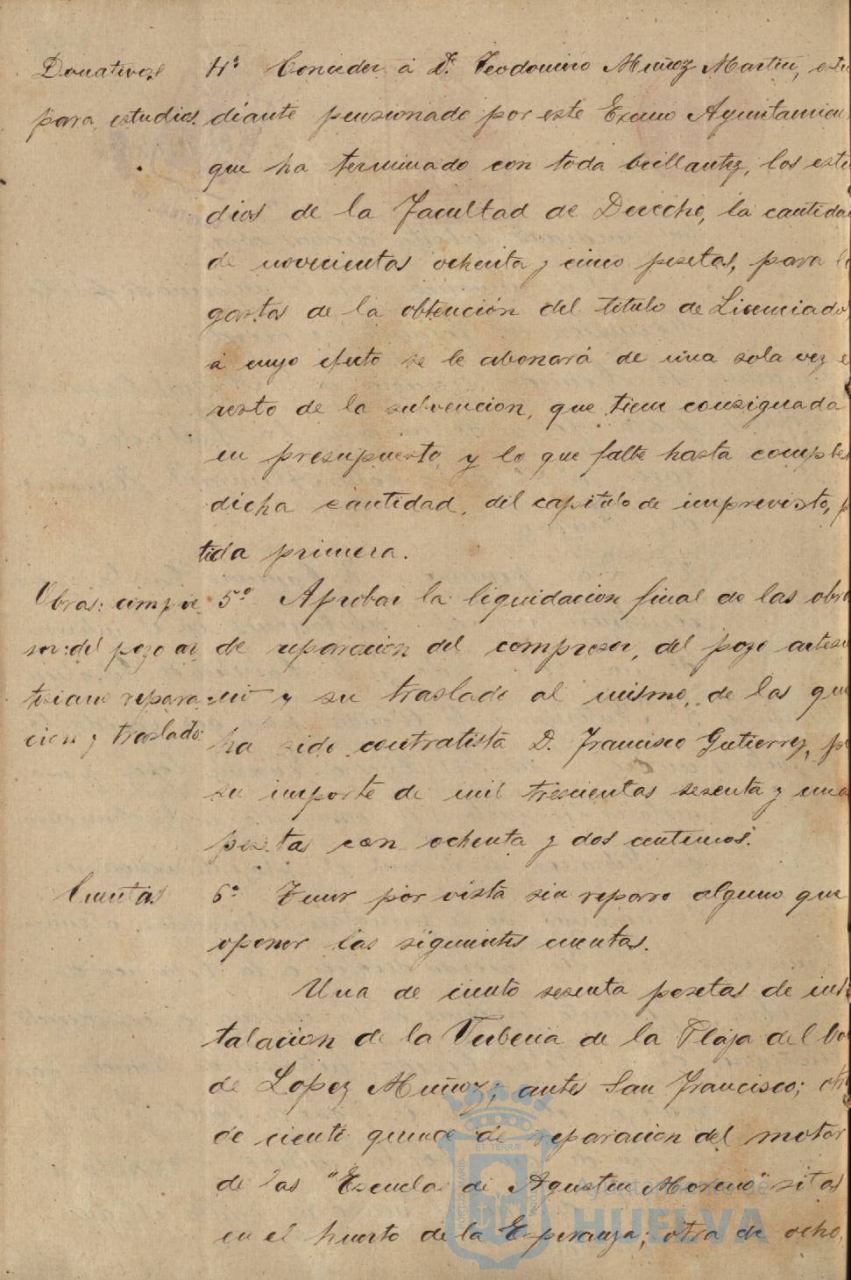 Donativos
para estudios.
4º Conceder á D. Teodomiro Muñoz Martin, estu
diante pensionado por este Excmo Ayuntamien
que ha terminado con toda brillantez, los estu
dios de la Facultad de Derecho, la cantida
de novecientas ochenta y cinco pesetas, para l
gastos de la obtención del titulo de Licenciado,
á cuyo efecto se le abonará de una sola vez e
resto de la subvencion, que tiene consignada
en presupuesto, y lo que falte hasta comple
dicha cantidad, del capitulo de imprevisto, p
tida primera.
Obras: compre
sor: del pozo ar
tesiano repara
cion y traslado.
5º Aprobar la liquidacion final de las obra
de reparacion del compresor, del pozo artesi
ano y su traslado al mismo, de las que
ha sido contratista D. Francisco Gutierrez, p
su importe de mil trescientas sesenta y una
pesetas con ochenta y dos centimos.
Cuentas
6º Tener por vista sin reparo alguno que
oponer las siguientes cuentas.
Una de ciento sesenta pesetas de ins
talacion de la Tuberia de la Plaza del
de Lopez Muñoz; antes San Francisco; otra
de ciento quince de reparacion del motor
de las "Escuelas de Agustin Moreno" sitas
en el huerto de la Esperanza; otra de ocho,
Ayuntamiento de
HUELVA